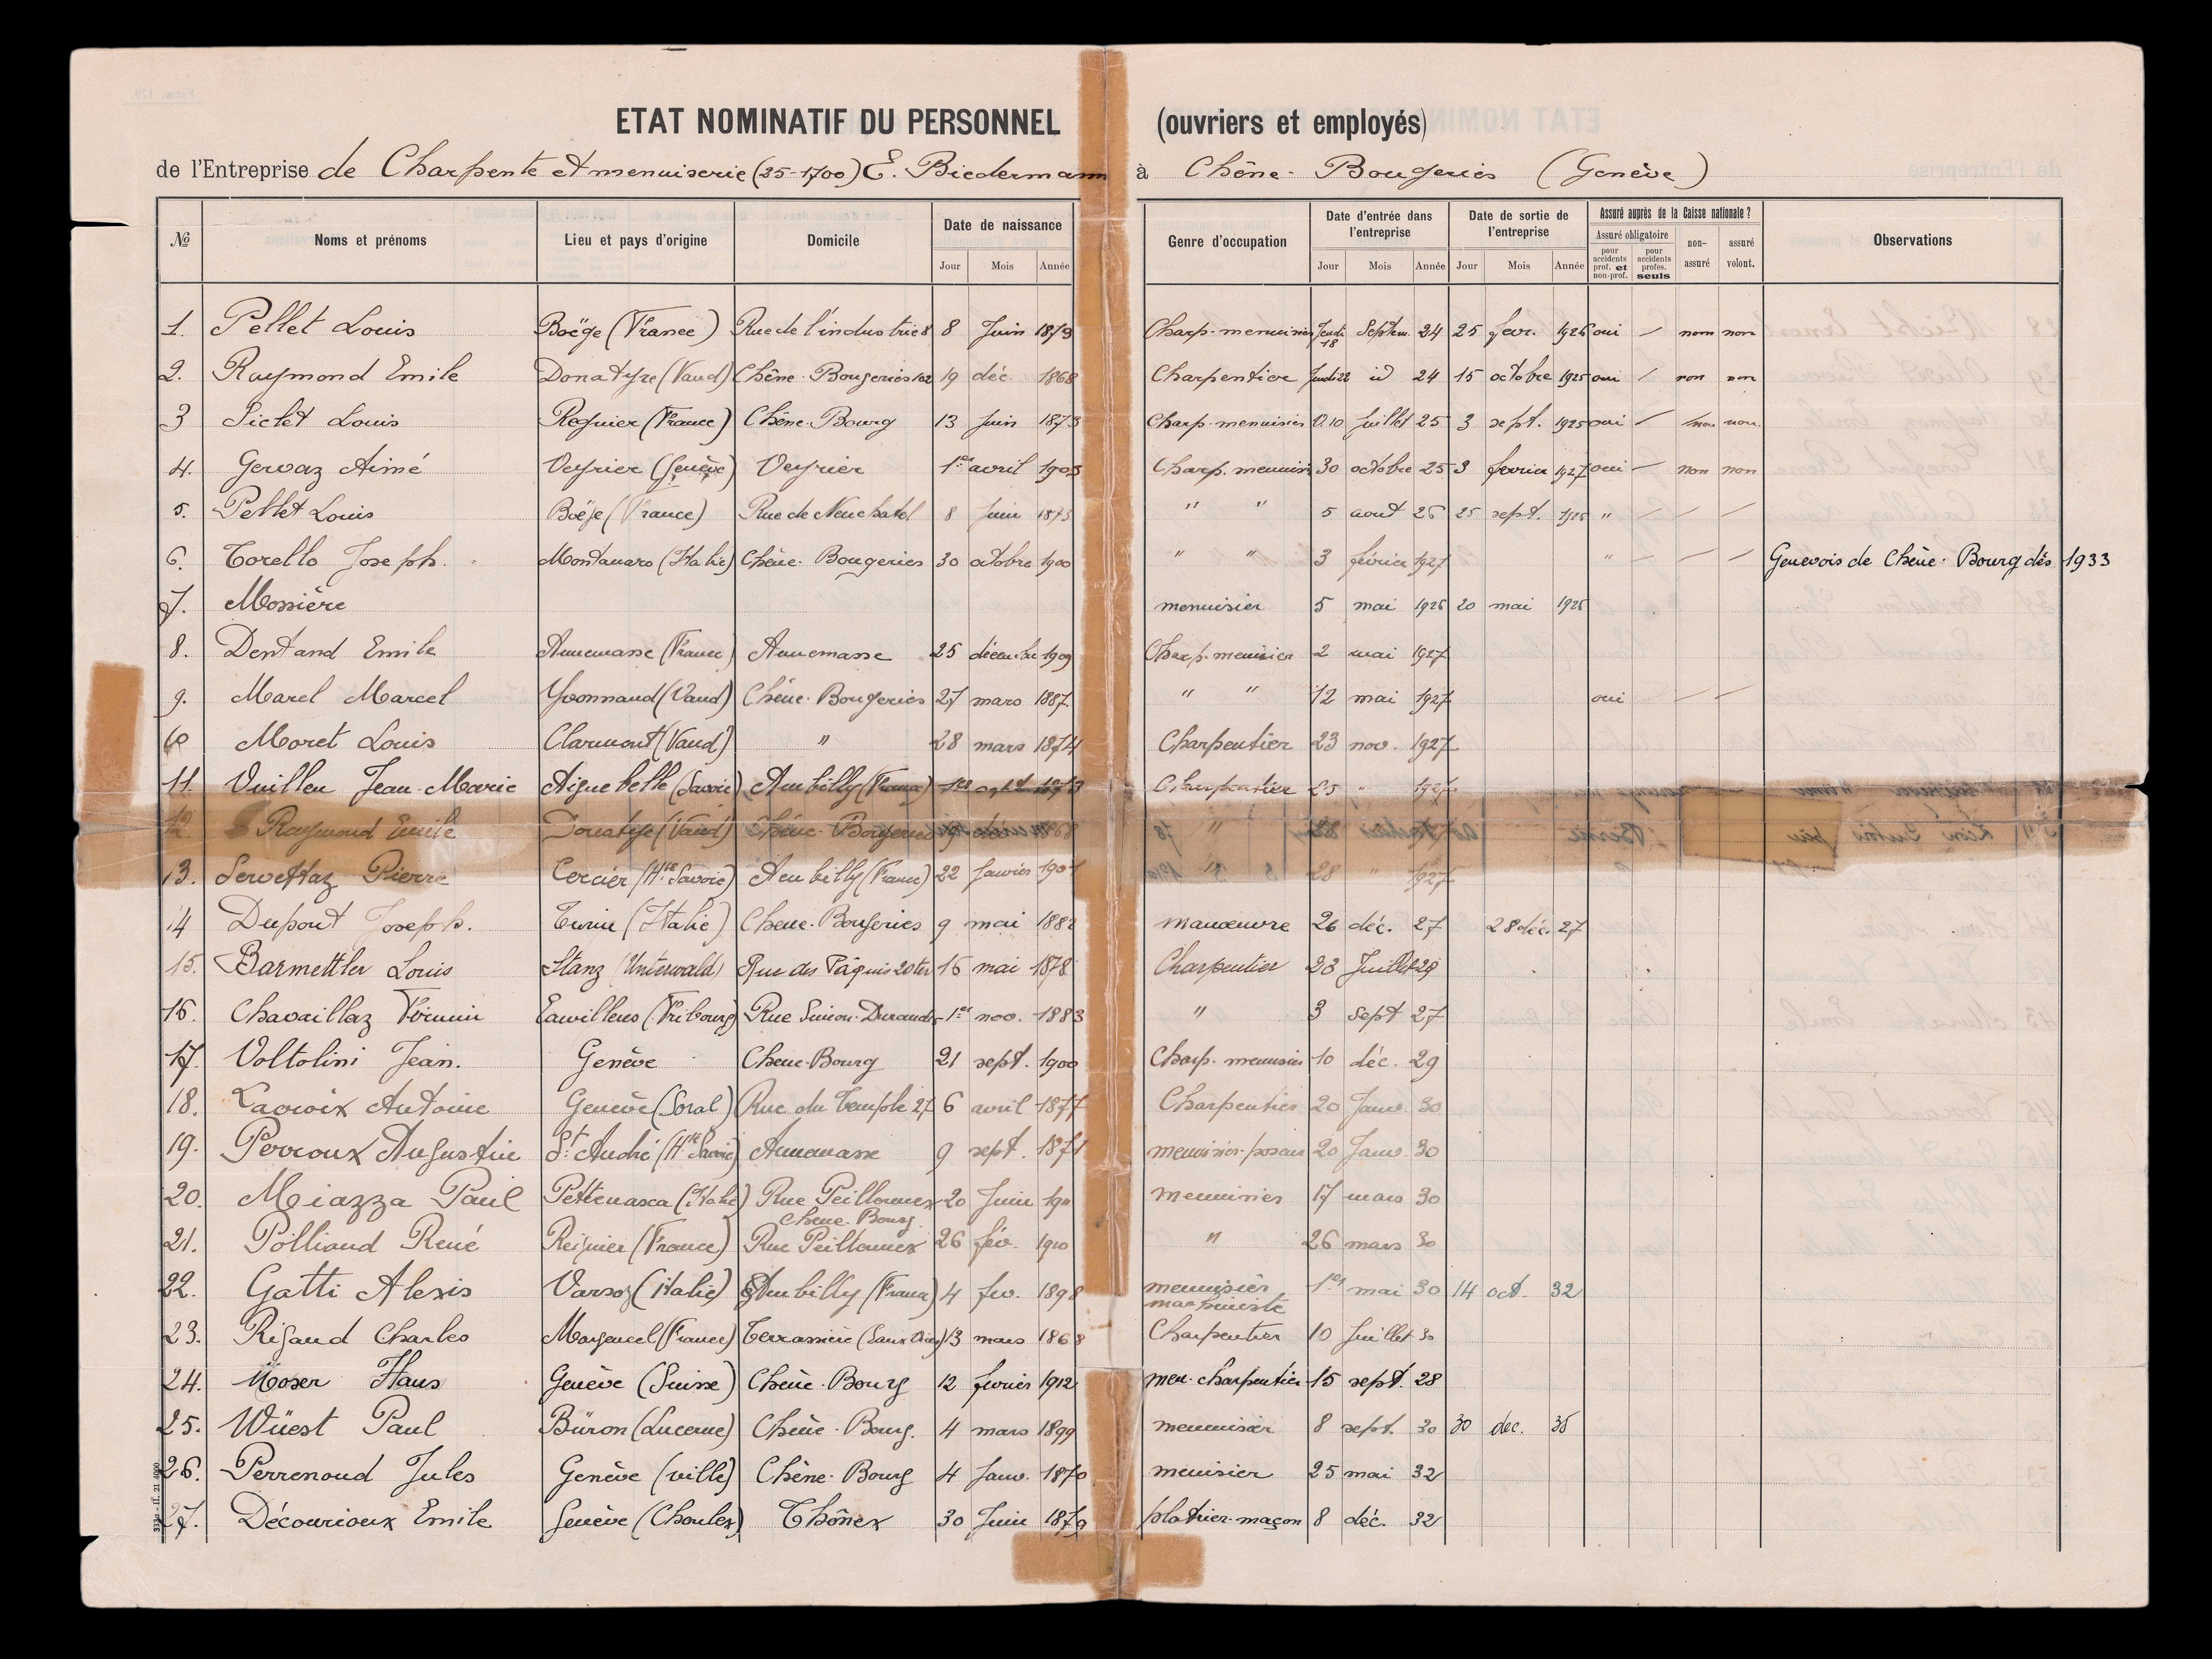 ETAT NOMINATIF DU PERSONNEL (ouvriers et employés)
de l'Entreprise de Charpente et menuiserie (25-1700) E. Biedermann à Chêne-Bougeries (Genève)
№ Noms et prénoms Lieu et pays d'origine Domicile Date de naissance Genre d'occupation Date d'entrée dans l'entreprise Date de sortie de l'entreprise Assuré auprès de la Caisse nationale? Observations
Jour Mois Année Jour Mois Année Jour Mois Année Assuré obligatoire pour accidents prof. et non-prof. pour accidents profes. seuls non-assuré assuré volont.
1. Pellet Louis Boëge (France) Rue de l'industrie 8 8 Juin 1879 Charp-menuisier Jeudi 18 Septem. 24 25 fevr. 1926 oui / non non
2. Raymond Emile Donatyre (Vaud) Chêne-Bougeries 102 19 déc. 1868 Charpentier 22 id 24 15 octobre 1925 oui / non non
3 Louis Regnier (France) Chêne-Bourg 13 Juin 1873 Charp-menuisier 10 Juillet 25 3 sept. 1925 oui / non non
4. Gervaz Aimé Veyrier (Genève) Veyrier 1er avril 1903 Charp. menuisier 30 octobre 25 3 fevrier 1927 oui — non non
5. Pellet Louis Boëge (France) Rue de Neuchatel 8 Juin 1873 " " 5 aout 26 25 sept. 1926 " — — —
6. Torello Joseph. Montanaro (Italie) Chêne-Bougeries 30 octobre 1900 " " 3 février 1927 " — — — Genevois de Chêne-Bourg dès 1933
7. Mossière menuisier 5 mai 1926 20 mai 1926
8. Dentand Emile Annemasse (France) Annemasse 25 décembre 1909 Charp-menuisier 2 mai 1927
9. Marel Marcel Yvonnand (Vaud) Chêne-Bougeries 27 mars 1887 " " 12 mai 1927 oui — —
10 Moret Louis Clarmont (Vaud) " 28 mars 1874 Charpentier 23 nov. 1927
11. Vuilleu Jean-Marie Aiguebelle (Savoie) Ambilly (France) 1er Charpentier 25 " 1927
12 Raymond Emile Donatyre (Vaud) Chêne-Bougeries 19 1868 "
13. Servettaz Pierre Cercier (Hte Savoie) Ambilly (France) 22 Janvier " 28 " 1927
14 Dupont Joseph. Turin (Italie) Chene-Bougeries 9 mai 1882 manœuvre 26 déc. 27 28 déc. 27
15. Barmettler Louis Stanz (Unterwald) Rue des Pâquis 20 ter 16 mai 1878 Charpentier 23 Juillet 29
16. Chavaillaz Firmin Ecuvillens (Fribourg) Rue Simon-Durand 1er nov. 1883 " 3 sept 27
17. Voltolini Jean. Genève Chene-Bourg 21 sept. 1900 Charp-menuisier 10 déc. 29
18. Lacroix Antoine Genève (Soral) Rue du Temple 27 6 avril 1877 Charpentier 20 Janv. 30
19. Perroux Augustin St. André (Hte Savoie) Annemasse 9 sept. 1871 menuisier-poseur 20 Janv. 30
20. Miazza Paul Pettenasca (Italie) Rue Peillonnex 20 Juin 1911 Menuisier 17 mars 30
Chene-Bourg.
21. Polliand René Reignier (France) Rue Peillonnex 26 fév. 1910 " 26 mars 30
22. Gatti Alexis (Italie) Ambilly (France) 4 fev. 1898 menuisier machiniste 1er mai 30 14 oct. 32
23. Rigaud Charles Margencel (France) Terrassière (Eaux-Vives) 13 mars 1868 Charpentier 10 Juillet 30
24. Moser Hans Genève (Suisse) Chêne-Bourg 12 fevrier 1912 men-charpentier 15 sept. 28
25. Wüest Paul Büron (Lucerne) Chêne-Bourg. 4 mars 1899 menuisier 8 sept. 30 30 dec. 35
26. Perrenoud Jules Genève (ville) Chêne-Bourg 4 Janv. 1870 menuisier 25 mai 32
27. Décourioux Emile Genève (Choulex) Thônex 30 Juin 1879 platrier-maçon 8 déc. 32